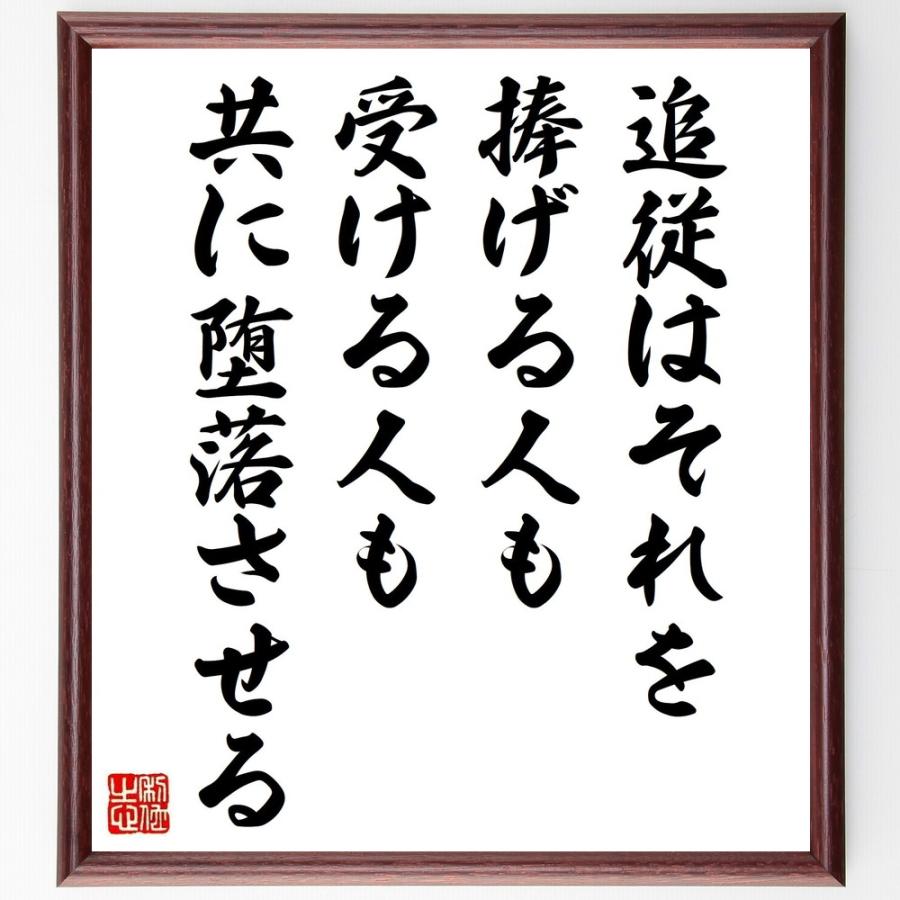 追従はそれを
捧げる人も
受ける人も
共に堕落させる